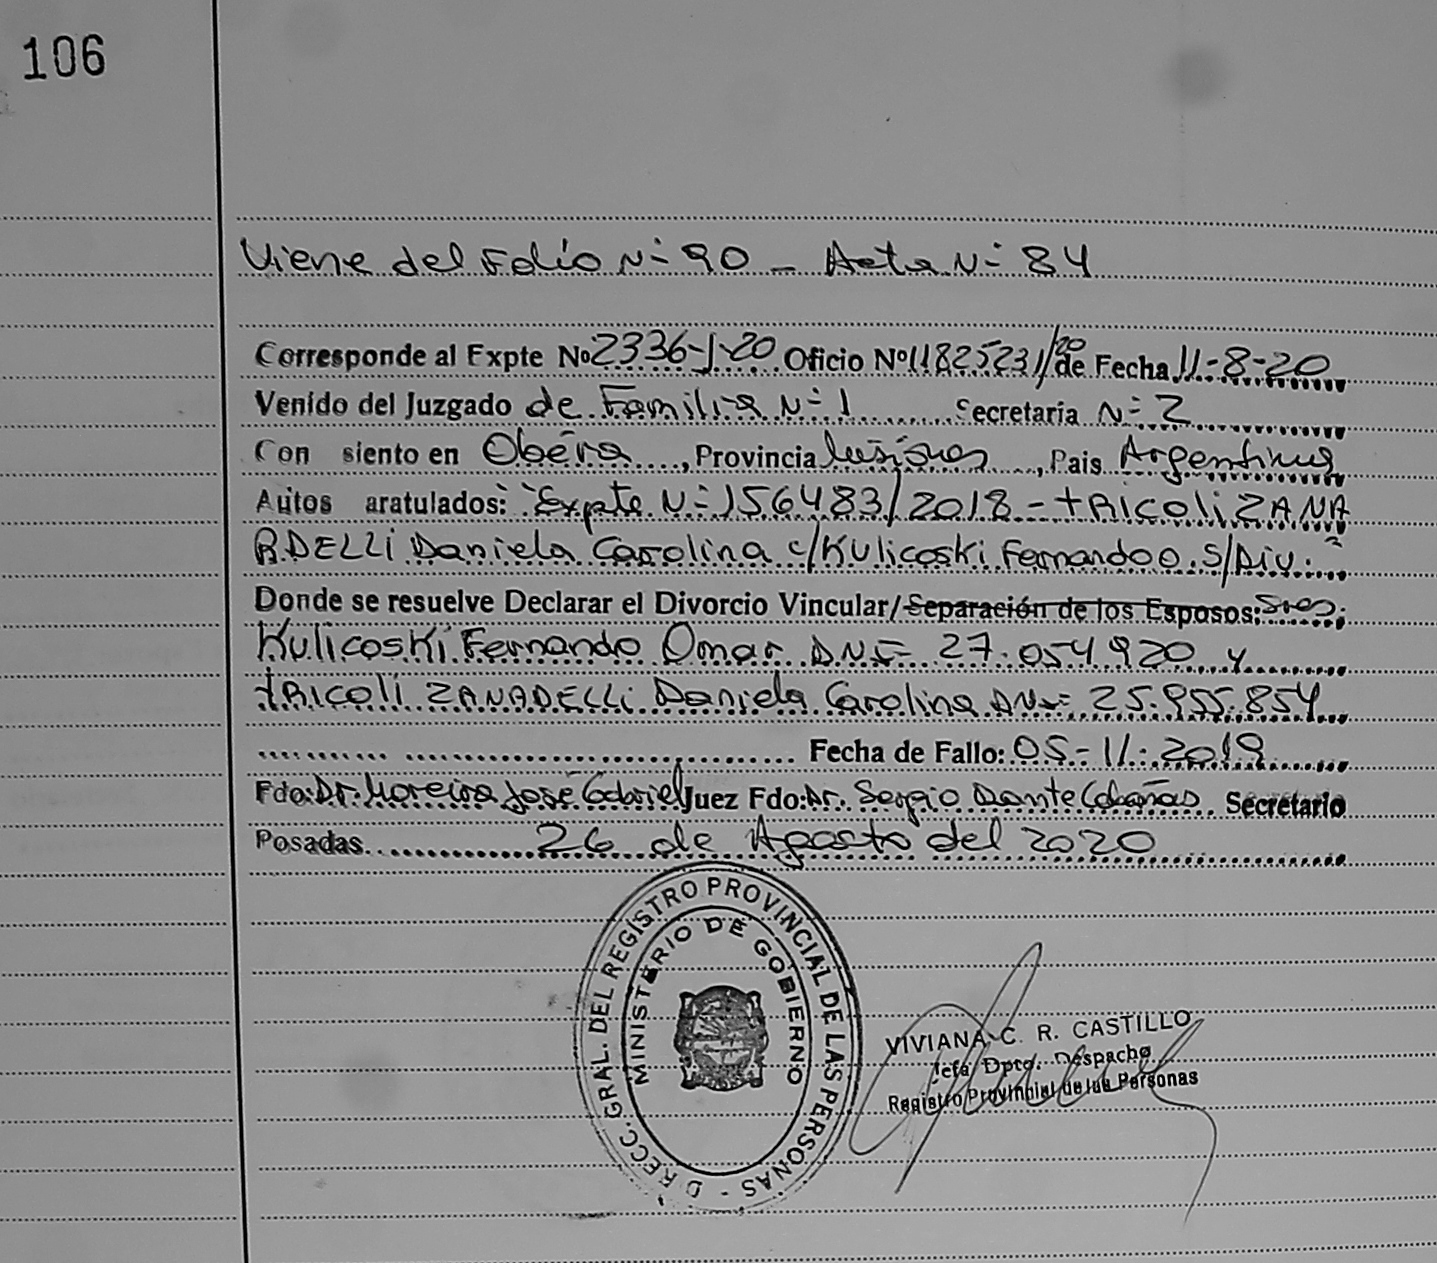 106
Viene del Folio N= 90 - Acta N= 84
Corresponde al Expte Nº 2336-J-20 Oficio Nº 11825231/20 de Fecha 11-8-20
Venido del Juzgado de Familia N= 1 Secretaria N= 2
Con siento en Oberá, Provincia Misiones, Pais Argentina
Autos aratulados: "Expte N= 156483/2018 - tRicoli ZANA
RDELLi Daniela Carolina c/Kulicoski Fernando O. S/Div."
Donde se resuelve Declarar el Divorcio Vincular/Separación de los Esposos: Sres.
Kulicoski Fernando Omar D.N.I= 27.054.920 y
tRicoli ZANADELLi Daniela Carolina DNI= 25.955.854
Fecha de Fallo: 05-11-2019
Fdo: Dr. Moreira José Gabriel Juez Fdo: Dr. Sergio Dante Cabañas Secretario
Posadas 26 de Agosto del 2020
DIRECC. GRAL. DEL REGISTRO PROVINCIAL DE LAS PERSONAS -
MINISTERIO DE GOBIERNO
VIVIANA C. R. CASTILLO
Jefa Dpto. Despacho
Registro Provincial de las Personas